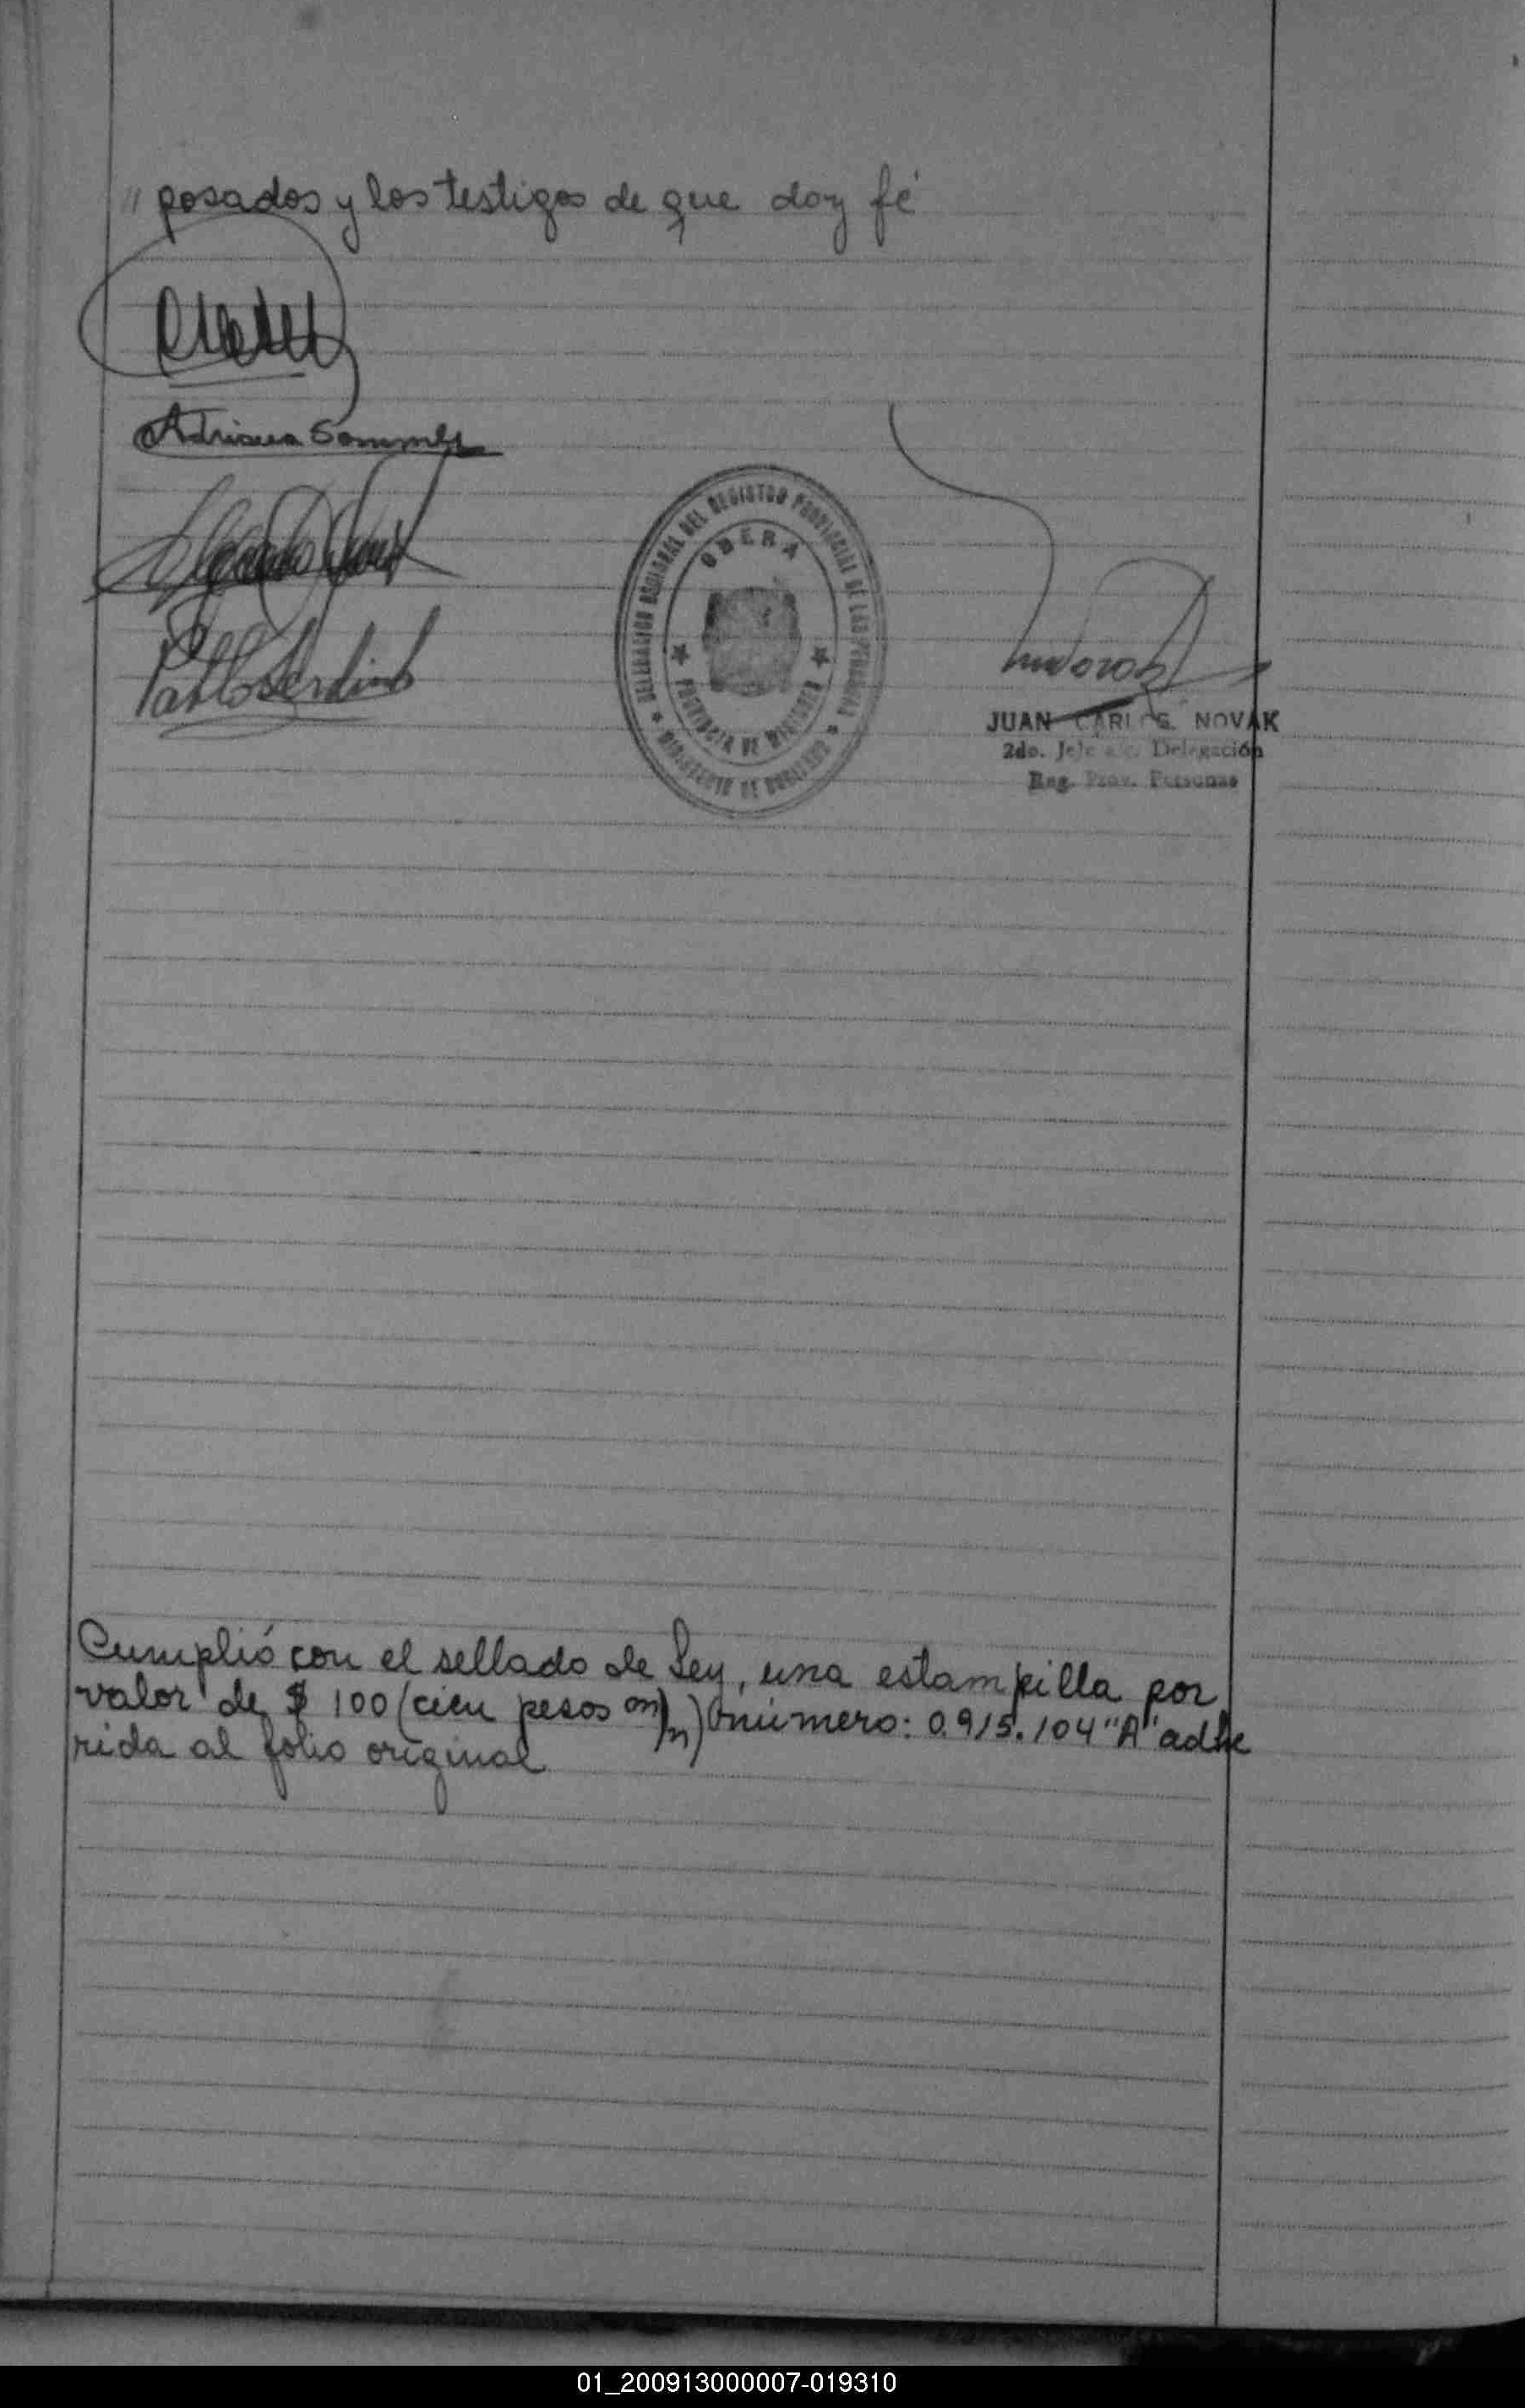 " posados y los testigos de que doy fé
Adriana Sommer
Pablo
DELEGACION REGIONAL DEL REGISTRO PROVINCIAL DE LAS PERSONAS
OBERA
PROVINCIA DE MISIONES
MINISTERIO DE GOBIERNO
JUAN CARLOS NOVAK
2do. Jefe a/c. Delegación
Reg. Prov. Personas
Cumplió con el sellado de Ley, una estampilla por
valor de $ 100 (cien pesos m/n) número: 0.915.104 "A" adhe
rida al folio original
01_200913000007-019310